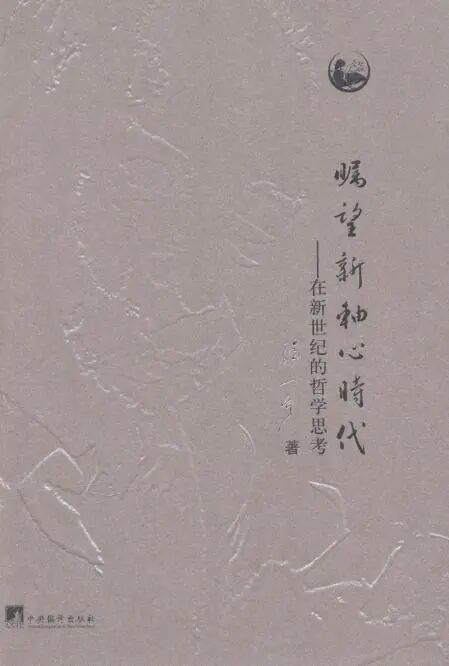 瞩望新軸心時代
——在新世纪的哲学思考
著
中央编译出版社